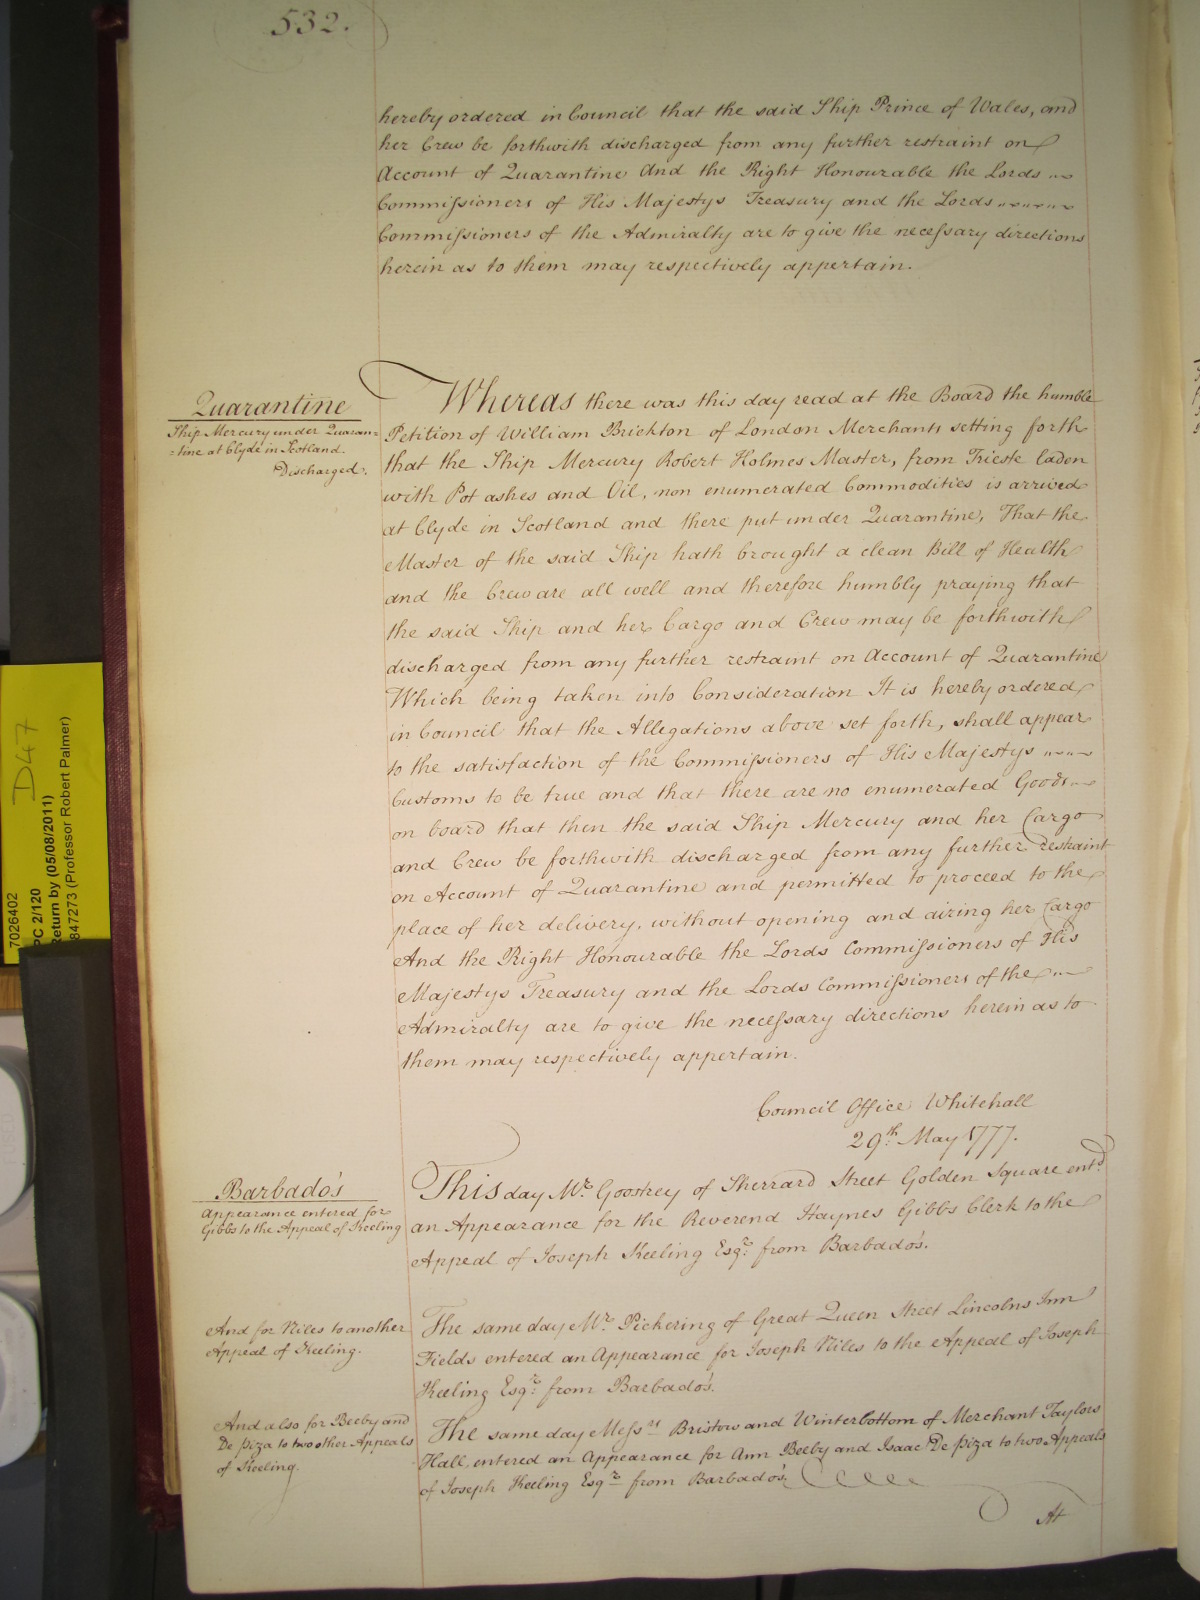 532.
hereby ordered in Council that the said Ship Prince of Wales, and
her Crew be forthwith discharged from any further restraint on
Account of Quarantine And the Right Honourable the Lords
Commissioners of His Majestys Treasury and the Lords
Commissioners of the Admiralty are to give the necessary directions
herein as to them may respectively appertain.
Quarantine
Ship Mercury under Quaran=
=tine at Clyde in Scotland.
Discharged.
Whereas there was this day read at the Board the humble
Petition of William Brickton of London Merchants setting forth
that the Ship Mercury Robert Holmes Master, from Trieste laden
with Pot ashes and Oil, non enumerated Commodities is arrived
at Clyde in Scotland and there put under Quarantine, That the
Master of the said Ship hath brought a clean Bill of Health
and the Crew are all well and therefore humbly praying that
the said Ship and her Cargo and Crew may be forthwith
discharged from any further restraint on Account of Quarantine
Which being taken into Consideration It is hereby ordered
in Council that the Allegations above set forth, shall appear
to the satisfaction of the Commissioners of His Majestys
Customs to be true and that there are no enumerated Goods
on board that then the said Ship Mercury and her Cargo
and Crew be forthwith discharged from any further restraint
on Account of Quarantine and permitted to proceed to the
place of her delivery, without opening and airing her Cargo
And the Right Honourable the Lords Commissioners of His
Majestys Treasury and the Lords Commissioners of the
Admiralty are to give the necessary directions herein as to
them may respectively appertain.
Council Office Whitehall
29th. May 1777.
Barbado's
Appearance entered for
Gibbs to the Appeal of Keeling
This day Mr. Goostrey of Sherrard Street Golden Square entd
an Appearance for the Reverend Haynes Gibbs Clerk to the
Appeal of Joseph Keeling Esqr. from Barbado's.
And for Niles to another
Appeal of Keeling.
The same day Mr. Pickering of Great Queen Street Lincolns Inn
Fields entered an Appearance for Joseph Niles to the Appeal of Joseph
Keeling Esqr. from Barbado's.
And also for Beeby and
De Piza to two other Appeals
of Keeling.
The same day Messrs Bristow and Winterbottom of Merchant Taylors
Hall, entered an Appearance for Ann Beeby and Isaac De Piza to two Appeals
of Joseph Keeling Esqr. from Barbado's.
At
D47
7026402
PC 2/120
Return by (05/08/2011)
847273 (Professor Robert Palmer)